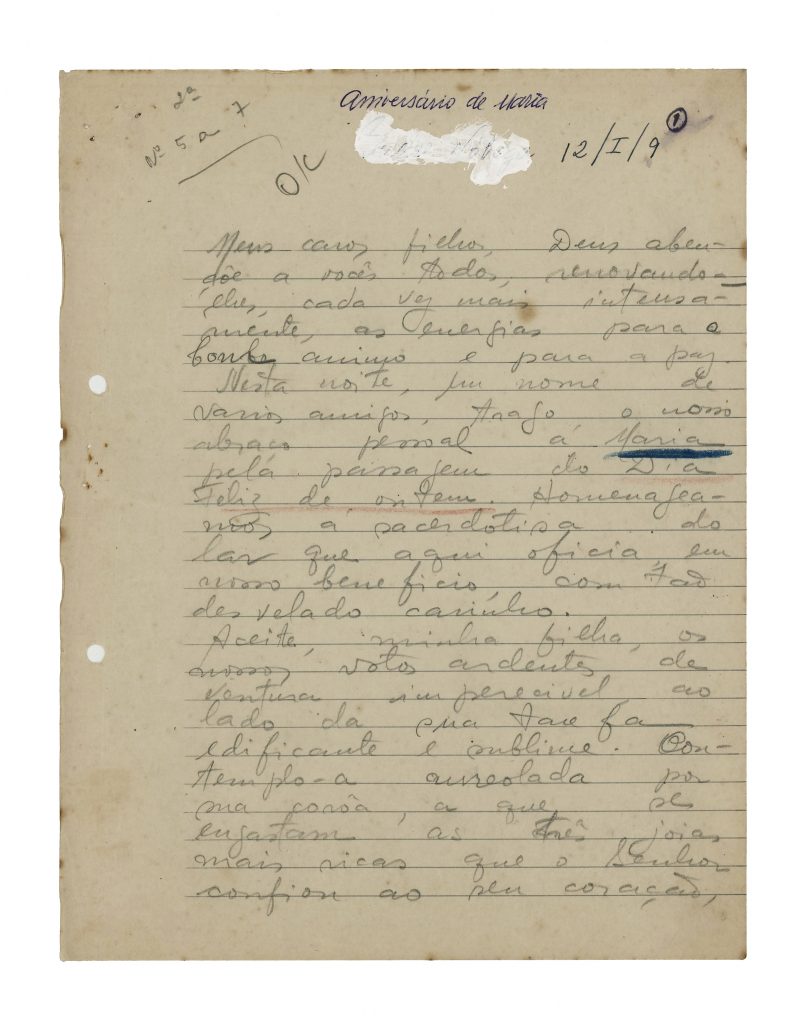 2ª
Nº 5 a 7
O/C
Aniversário de Maria
12/I/9 1
Meus caros filhos, Deus aben-
çôe a vocês todos, renovando-
lhes, cada vez mais intensa-
mente, as energias para o
bom animo e para a paz.
Nesta noite, em nome de
varios amigos, trago o nosso
abraço pessoal á Maria
pela passagem do Dia
Feliz de ontem. Homenagea-
mos a sacerdotisa do
lar que aqui oficia, em
nosso beneficio, com tão
desvelado carinho.
Aceite, minha filha, os
nossos votos ardentes de
ventura imperecivel, ao
lado da sua tarefa
edificante e sublime. Con-
templo-a aureolada por
sua corôa, a que se
engastam as três joias
mais ricas que o Senhor
confiou ao seu coração,